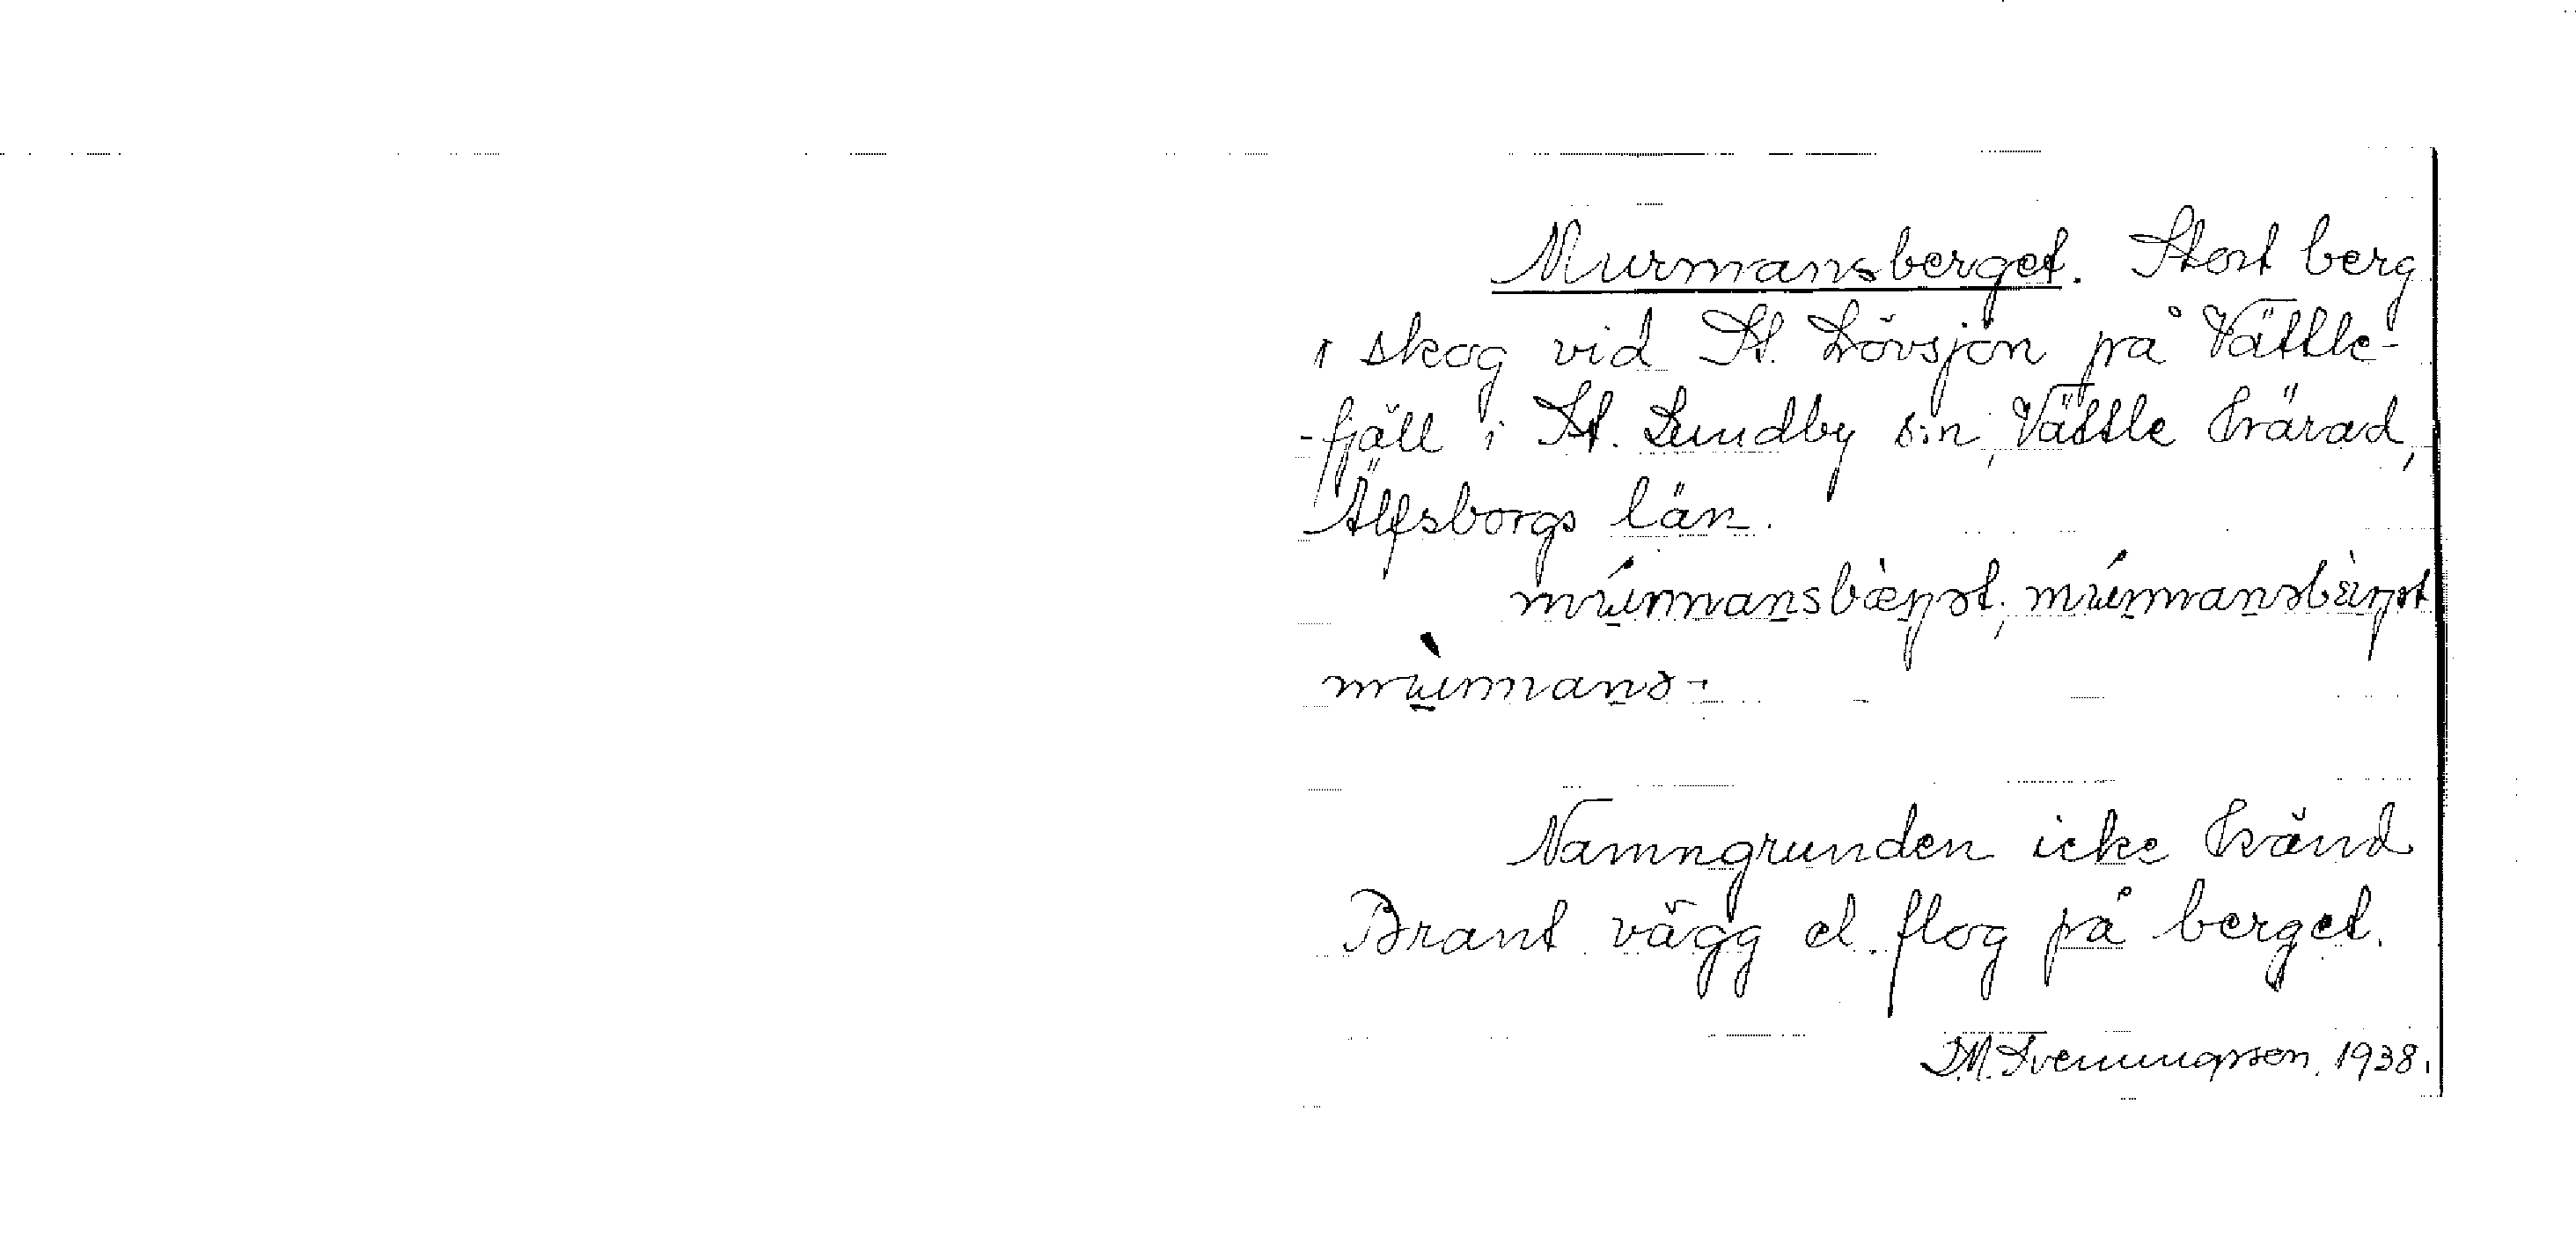 Murmansberget. Stort berg
i skog vid St. Lövsjön på Vättle-
-fjäll i St. Lundby s:n, Vättle härad,
Älfsborgs län.
Namngrunden icke känd
Brant vägg el. flog på berget.
D.M. Svenungsson. 1938.